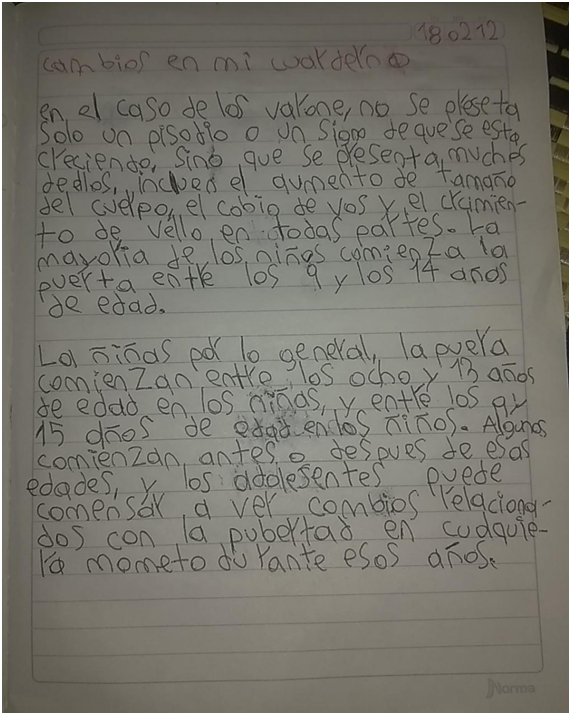 180212
cambios en mi
en el caso de los varone, no se preseta
solo un pisodio o un signo de que se esta
creciendo, sino que se presenta, muchos
dedlos, incluen el aumento de tamaño
del cuerpo, el cobio de vos y el crcimien-
to de vello en todas partes. La
mayoria de los niños comienza la
puerta entre los 9 y los 14 años
de edad.
La niñas por lo general, la puera
comienzan entre los ocho y 13 años
de edad en los niñas, y entre los 9 y
15 años de edad en los niños. Algunos
comienzan antes o despues de esas
edades, y los adolesentes puede
comensar a ver combios relaciona-
dos con la pubertad en cualquie-
ra mometo durante esos años.
Norma